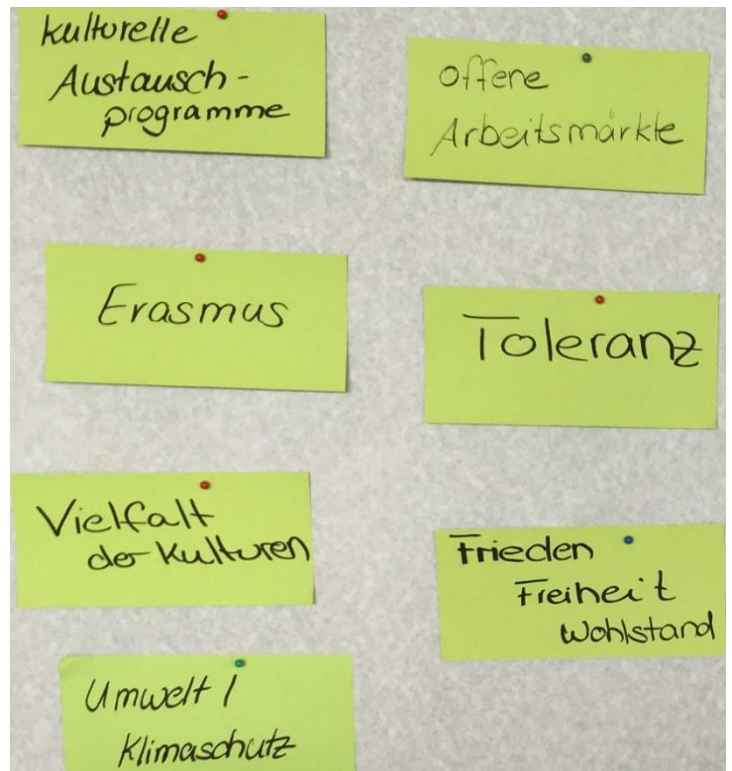 kulturelle
Austausch-
programme
Offene
Arbeitsmärkte
Erasmus
Toleranz
Vielfalt
der Kulturen
Frieden
Freiheit
Wohlstand
Umwelt /
Klimaschutz